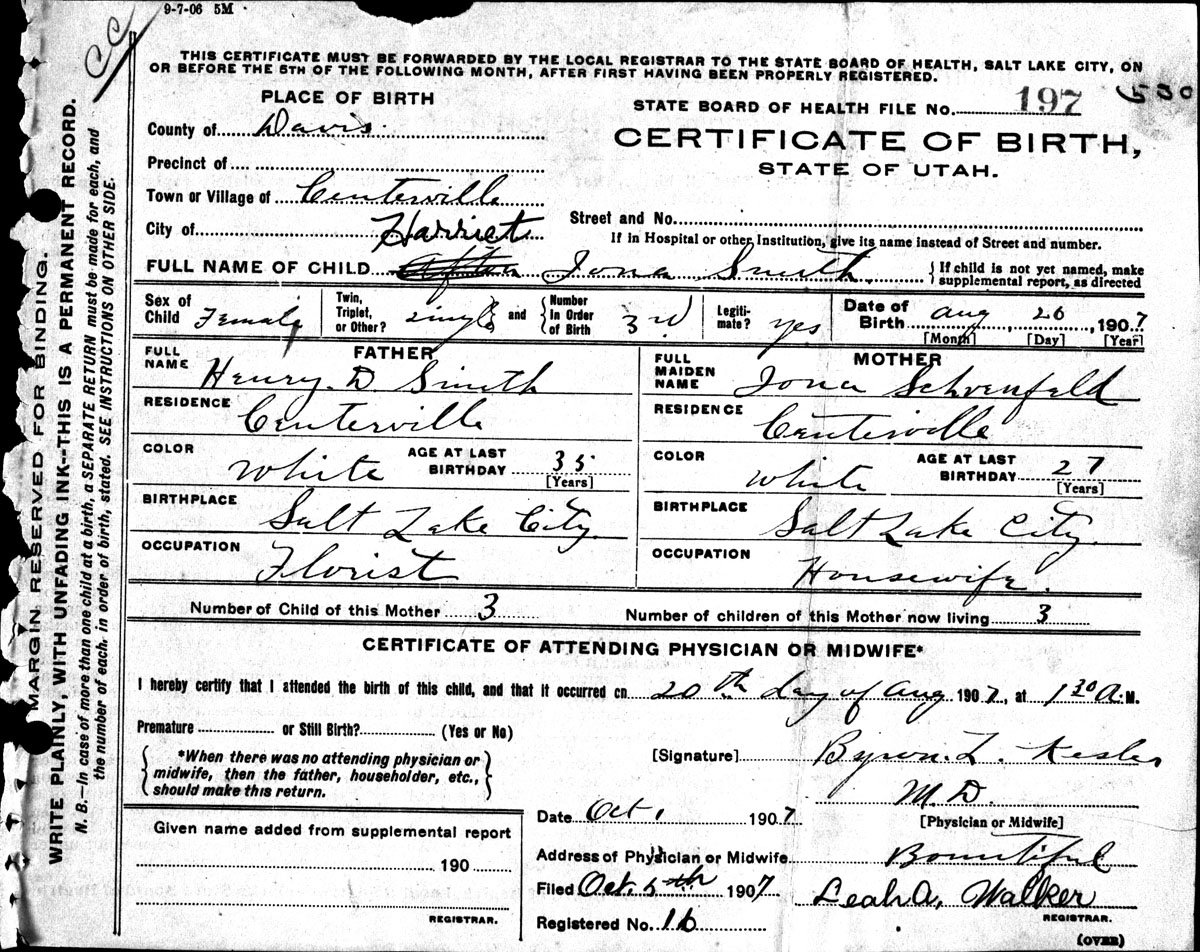 9-7-06 5M
CC
THIS CERTIFICATE MUST BE FORWARDED BY THE LOCAL REGISTRAR TO THE STATE BOARD OF HEALTH, SALT LAKE CITY, ON
OR BEFORE THE 5TH OF THE FOLLOWING MONTH, AFTER FIRST HAVING BEEN PROPERLY REGISTERED.
MARGIN RESERVED FOR BINDING.
WRITE PLAINLY, WITH UNFADING INK--THIS IS A PERMANENT RECORD.
N. B.—In case of more than one child at a birth, a SEPARATE RETURN must be made for each, and
the number of each, in order of birth, stated. SEE INSTRUCTIONS ON OTHER SIDE.
PLACE OF BIRTH
County of Davis.
Precinct of
Town or Village of Centerville
City of
STATE BOARD OF HEALTH FILE No. 197
CERTIFICATE OF BIRTH,
STATE OF UTAH.
Street and No.
If in Hospital or other Institution, give its name instead of Street and number.
Harriet
FULL NAME OF CHILD Iona Smith
If child is not yet named, make
supplemental report, as directed
Sex of Child Female
Twin, Triplet, or Other? single and Number In Order of Birth 3rd
Legiti-mate? yes
Date of Birth Aug, 26, 1907
[Month] [Day] [Year]
FATHER
FULL NAME Henry. D Smith
RESIDENCE Centerville
COLOR White AGE AT LAST BIRTHDAY 35 [Years]
BIRTHPLACE Salt Lake City.
OCCUPATION Florist
MOTHER
FULL MAIDEN NAME Iona Schoenfeld
RESIDENCE Centerville
COLOR White AGE AT LAST BIRTHDAY 27 [Years]
BIRTHPLACE Salt Lake City.
OCCUPATION Housewife.
Number of Child of this Mother 3 Number of children of this Mother now living 3
CERTIFICATE OF ATTENDING PHYSICIAN OR MIDWIFE*
I hereby certify that I attended the birth of this child, and that it occurred on 20th day of Aug 1907, at 1 30 A.M.
Premature or Still Birth? (Yes or No)
*When there was no attending physician or
midwife, then the father, householder, etc.,
should make this return.
[Signature] Byron. L. Kesler
M.D.
[Physician or Midwife]
Date Oct 1 1907
Address of Physician or Midwife Bountiful
Filed Oct. 5th 1907 Leah A. Walker
REGISTRAR.
Registered No. 16
(OVER)
Given name added from supplemental report
190
REGISTRAR.